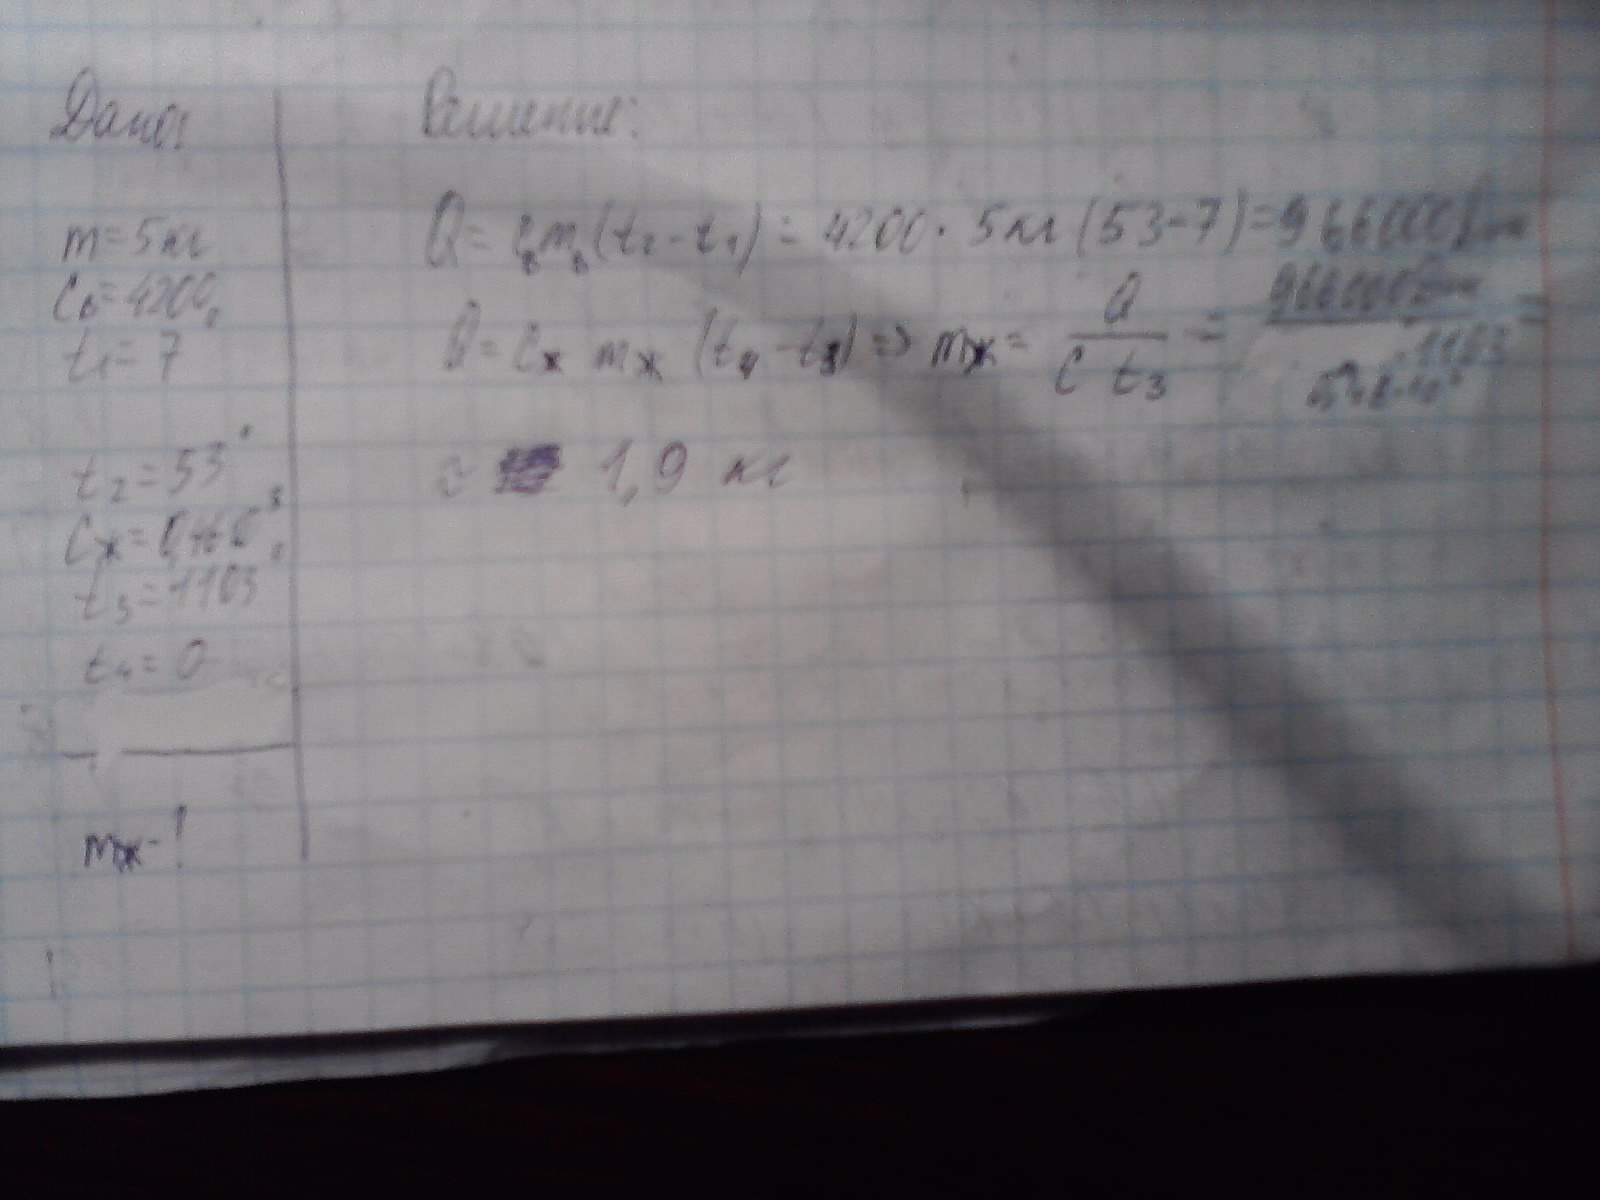 Дано:
m=5кг
Cв=4200
t1=7
t2=53°
Cж=
t3=1103
t4=0
mж-?
Решение:
Q= cвmв(t2-t1)= 4200· 5кг (53-7)=966000Дж
Q= Cж mж (t4-t3)=> mж= Q / C t3 = 966000Дж / 1103 =
≈ 1,9 кг